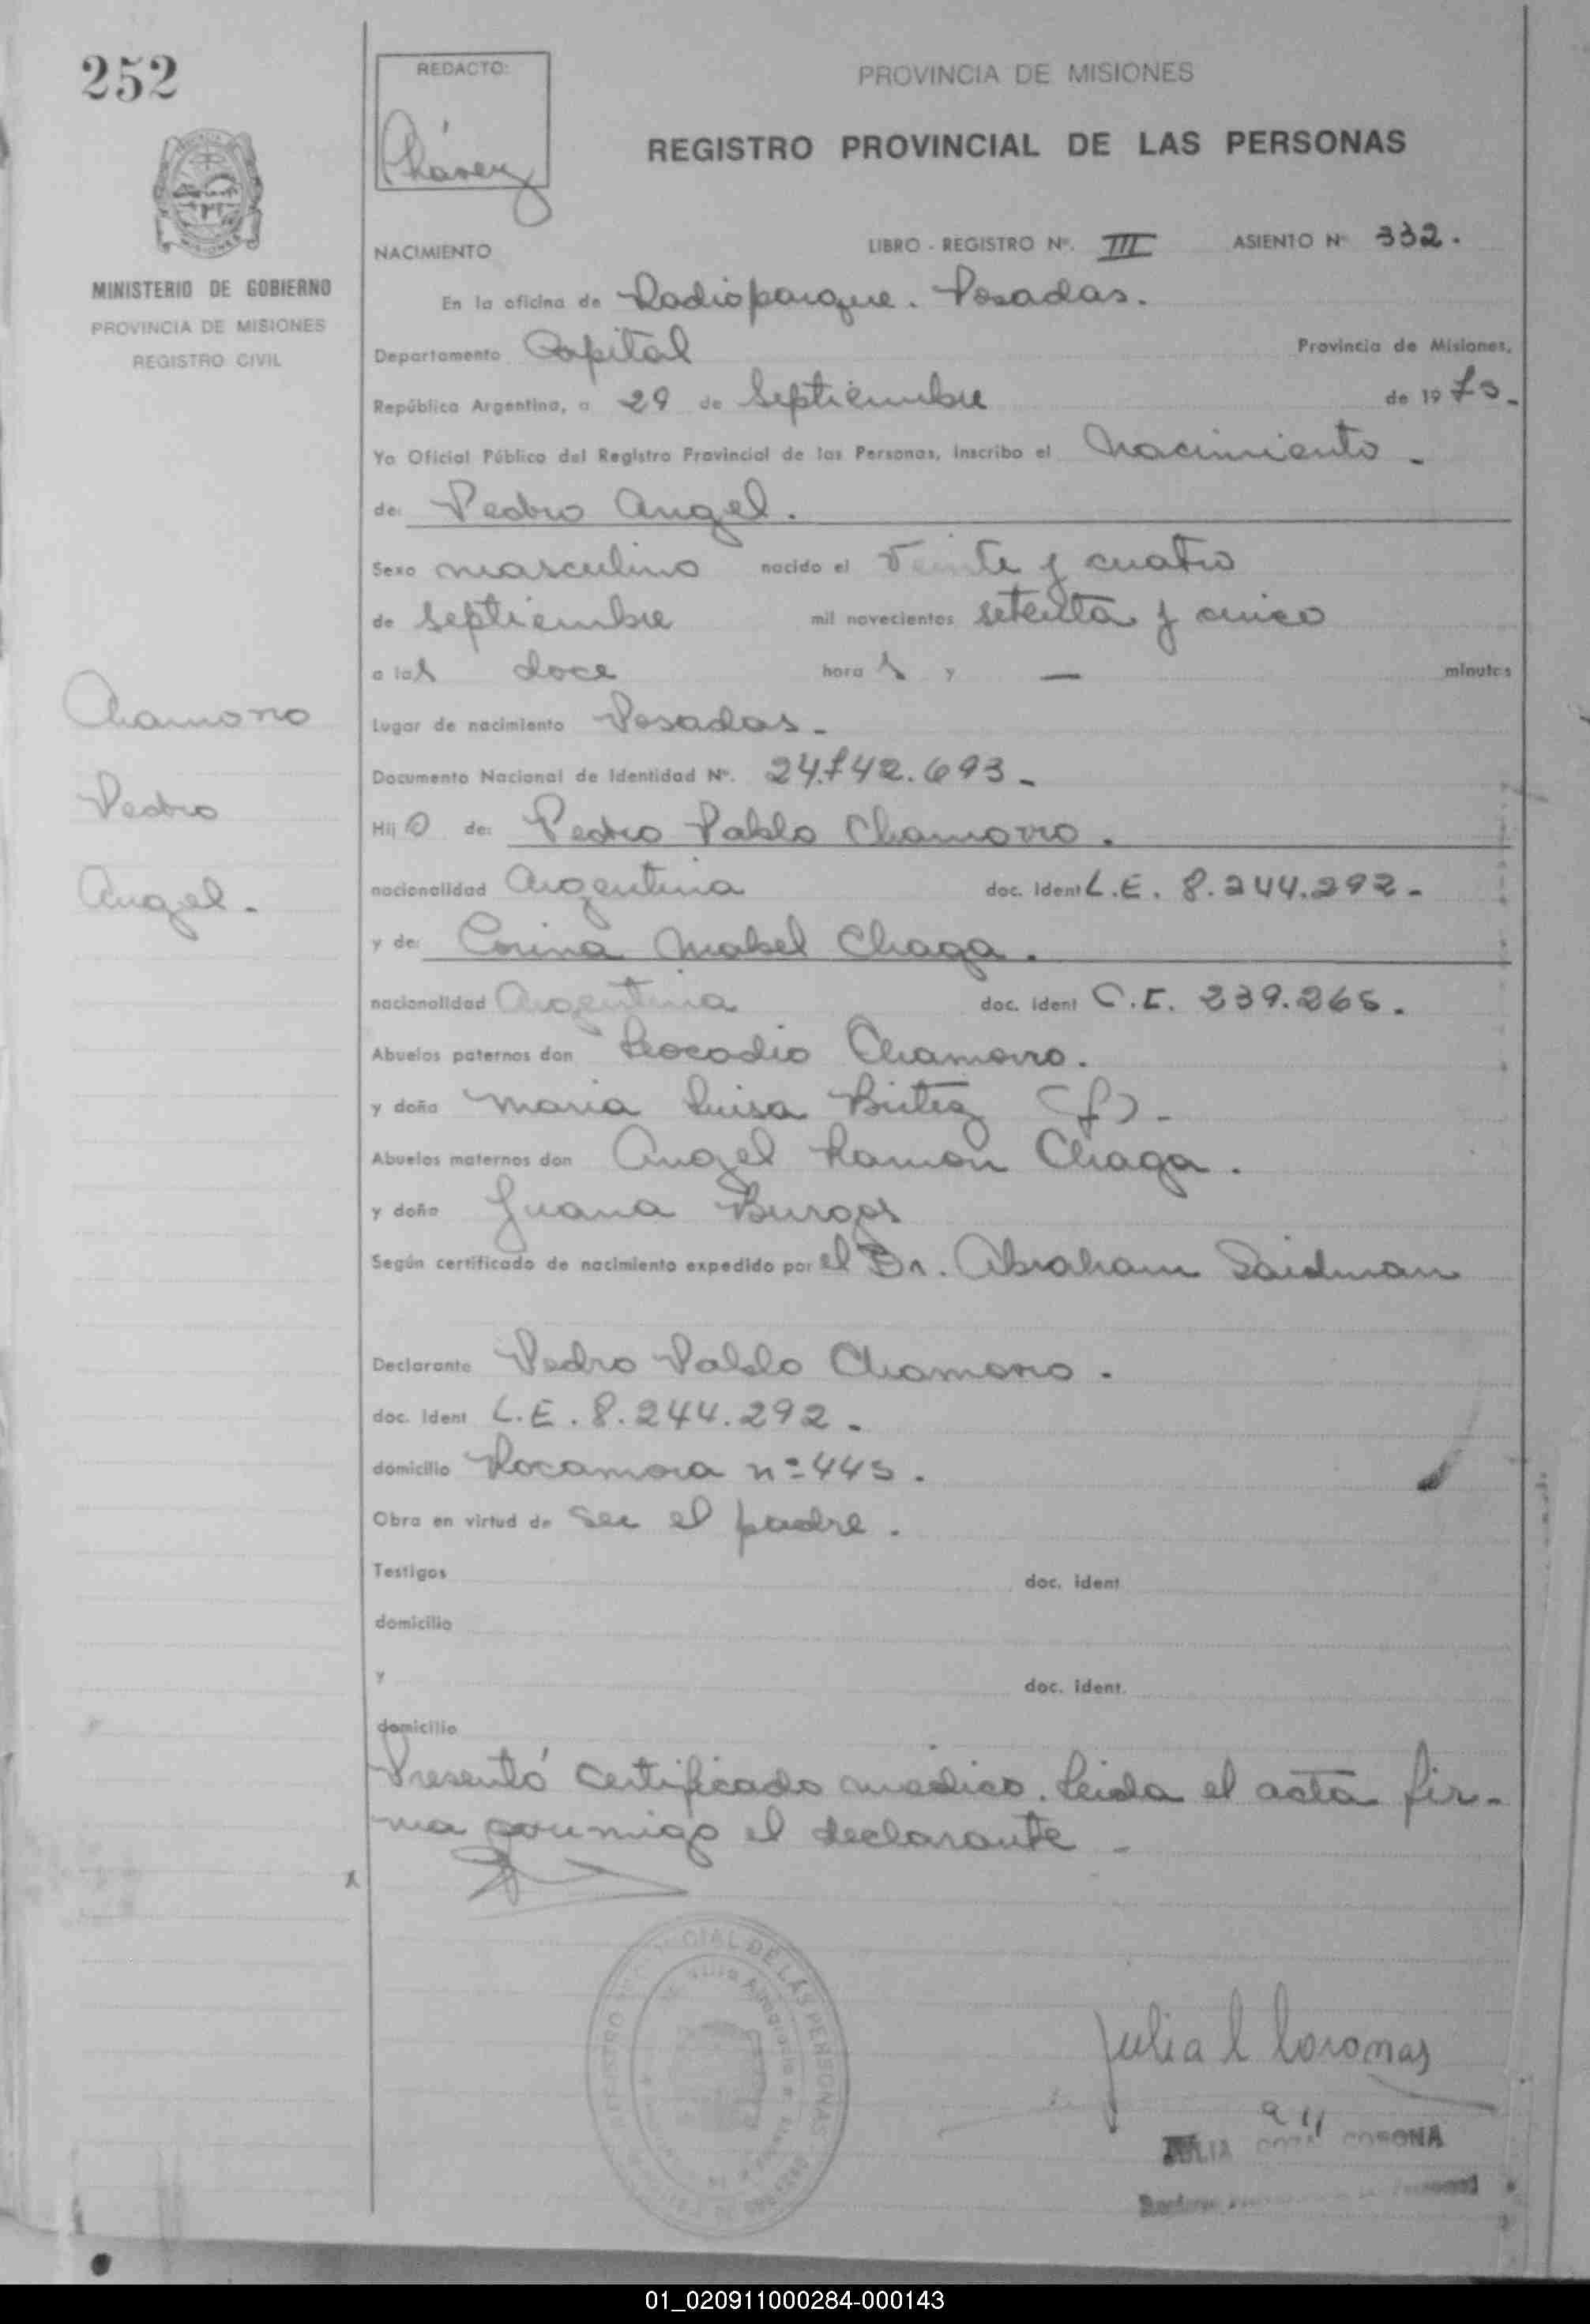 252
REDACTO:
Chávez
PROVINCIA DE MISIONES
REGISTRO PROVINCIAL DE LAS PERSONAS
MINISTERIO DE GOBIERNO
PROVINCIA DE MISIONES
REGISTRO CIVIL
NACIMIENTO LIBRO - REGISTRO Nº. III ASIENTO Nº 332.
En la oficina de Radioparque. Posadas.
Departamento Capital Provincia de Misiones,
República Argentina, a 29 de Septiembre de 1975.
Yo Oficial Público del Registro Provincial de las Personas, inscribo el Nacimiento.
de: Pedro Angel.
Sexo masculino nacido el veinte y cuatro
de septiembre mil novecientos setenta y cinco
a las doce horas y — minutos
Chamorro
Pedro
Angel.
Lugar de nacimiento Posadas.
Documento Nacional de Identidad Nº. 24.742.693.
Hijo de: Pedro Pablo Chamorro.
nacionalidad Argentina doc. Ident L.E. 8.244.292.
y de: Corina Mabel Chaga.
nacionalidad Argentina doc. Ident C.I. 239.265.
Abuelos paternos don Leocadio Chamorro.
y doña Maria Luisa (f).
Abuelos maternos don Angel Ramón Chaga.
y doña Juana Burgos
Según certificado de nacimiento expedido por el Dr. Abraham Saidman
Declarante Pedro Pablo Chamorro.
doc. Ident L.E. 8.244.292.
domicilio Rocamora nº 445.
Obra en virtud de ser el padre.
Testigos doc. ident
domicilio
y doc. ident.
domicilio
Presentó certificado médico. Leida el acta fir-
ma conmigo el declarante
DE LAS PERSONAS
Julia Coronas
CORONA
01_020911000284-000143